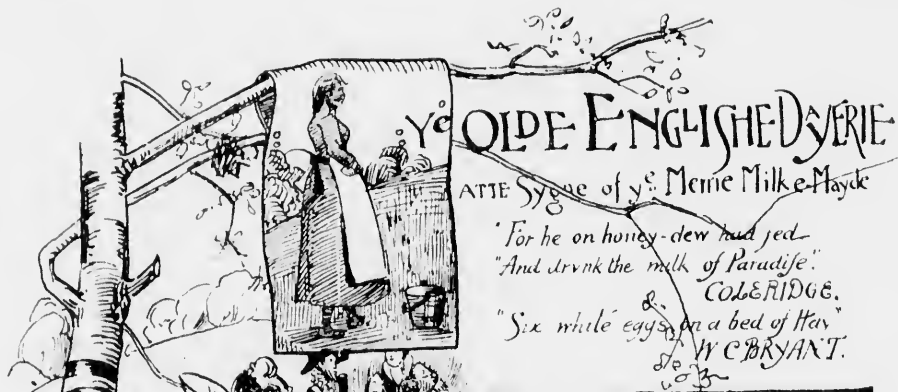 Ye OLDE ENGLISHE DAYERIE
ATTE Sygne of ye Merrie Milke-Mayde
"For he on honey-dew had fed
"And drunk the milk of Paradise".
COLERIDGE.
"Six white eggs on a bed of Hay"
W C BRYANT.